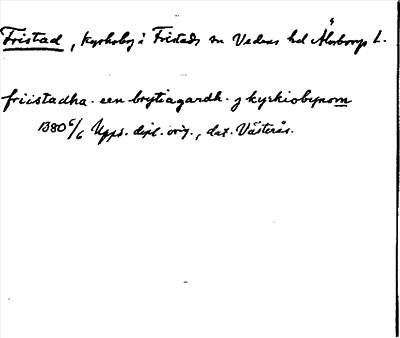 Fristad, kyrkoby i Fristads sn Vedens hd Älvsborgs l.
friistadha. een brytiagardh. j kyrkiobynom
1380 6/6 Upps. dipl. orig., dat. Västerås.